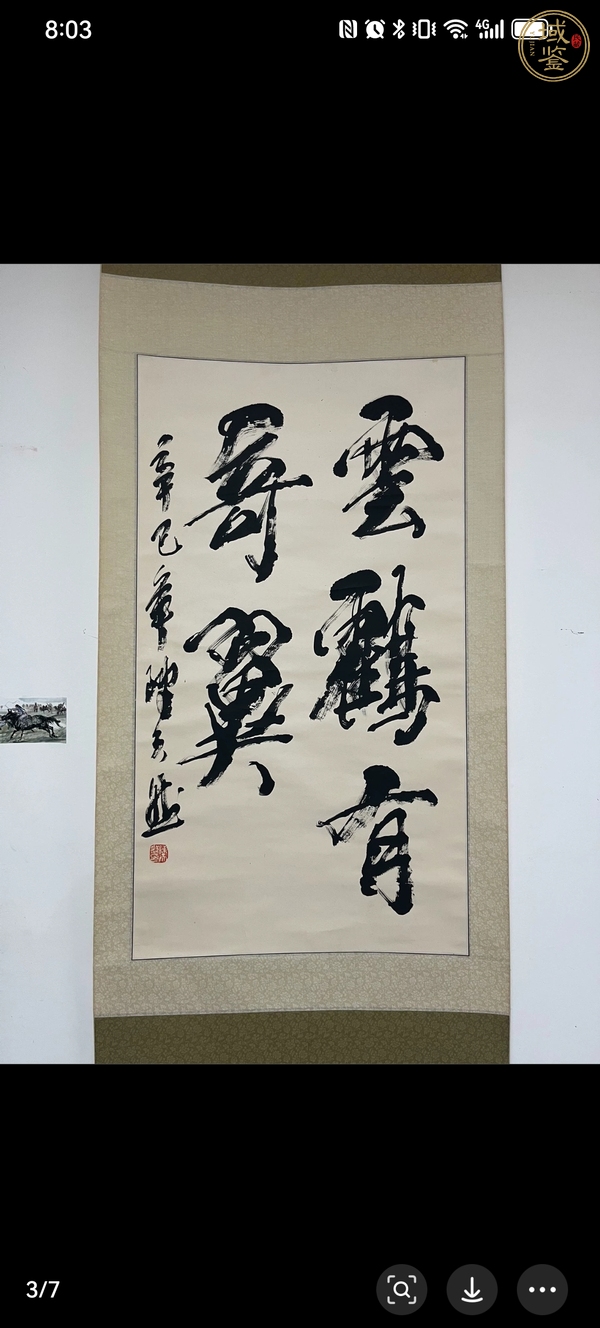 8:03
4G
域鉴
雲鶴有
奇翼
辛巳年
3/7